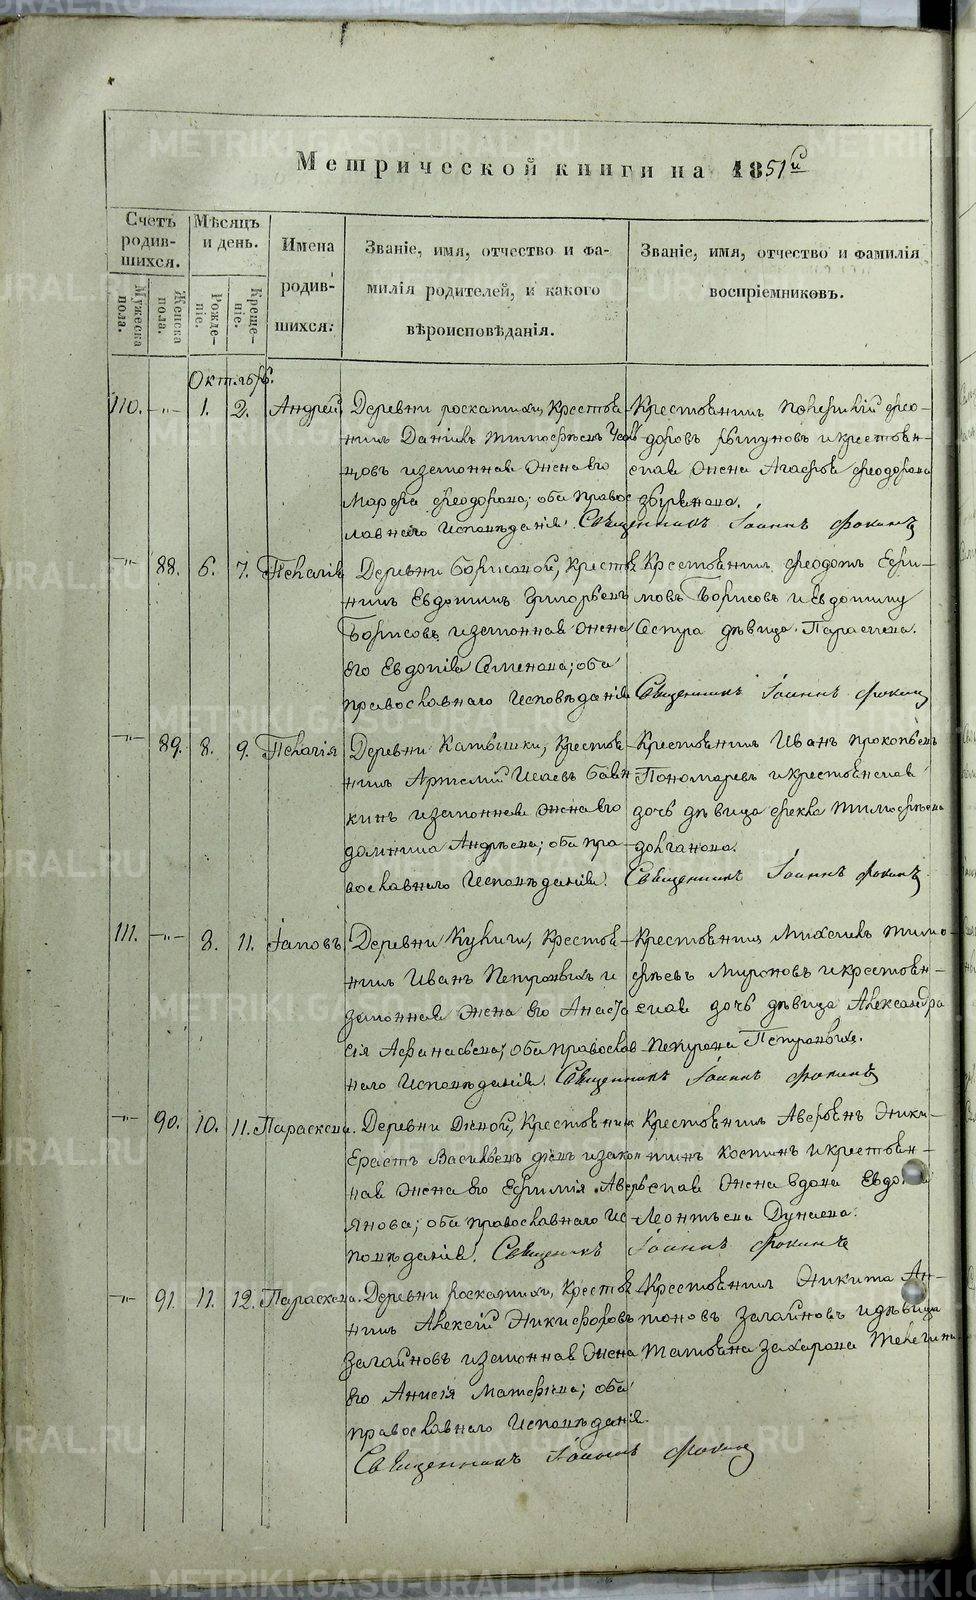 METRIKI.GASO-URAL.RU
Метрической книги на 1851й
Счетъ родив-шихся.
Мужеска пола.
Женска пола.
Мѣсяцъ и день.
Рожде-ніе.
Креще-ніе.
Имена родив-шихся.
Званіе, имя, отчество и фа-
милія родителей, и какого
вѣроисповѣданія.
Званіе, имя, отчество и фамилія
воспріемниковъ.
Октябрь.
110. -"- 1. 2. Андрей
Деревни Роскатихи, Крестья-
нинъ Даніилъ Тимофѣевъ
и законная Жена его
Марфа Феодорова; оба право-
славнаго Исповѣданія.
Крестьянинъ Феo-
доровъ и крестьян-
ская Жена Агафья Феодорова
Священникъ Іоаннъ Фокинъ
-"- 88. 6. 7. Пелагія
Деревни Борисовой, Кресть
нинъ Евдокимъ Григорьевъ
Борисовъ и законная Жена
его Евдокія Семенова; оба
православнаго Исповѣданія
Крестьянинъ Феодотъ Ефи-
мовъ Борисовъ и Евдокиму
Сестра дѣвица Параскева.
Священникъ Іоаннъ Фокинъ
-"- 89. 8. 9. Пелагія
Деревни Камышки, Крестья
нинъ Артемій Исаевъ Бабу
кинъ и законная Жена его
Домника Андреева; оба пра-
вославнаго Исповѣданія.
Крестьянинъ Иванъ Прокопьевъ
Пономаревъ и крестьянская
дочь дѣвица Фекла Тимофѣева
Долганова.
Священникъ Іоаннъ Фокинъ
111. -"- 8. 11. Іаковъ
Деревни Крестья-
нинъ Иванъ Петровыхъ и
законная Жена его Анаста
сія Афанасьева; оба православ
наго Исповѣданія.
Крестьянинъ Михаилъ Тимо-
фѣевъ Мироновъ и крестьян-
ская дочь дѣвица Александра
Петрова Петровыхъ.
Священникъ Іоаннъ Фокинъ
-"- 90. 10. 11. Параскева.
Деревни Крестьянинъ
Ерастъ Васильевъ и закон
ная Жена его Ефимія Аверь
янова; оба православнаго Ис-
повѣданія.
Крестьянинъ Аверьянъ Ники-
тинъ Костинъ и крестьян-
ская Жена вдова
Леонтьева Дунаева.
Священникъ Іоаннъ Фокинъ
-"- 91. 11. 12. Параскева.
Деревни Роскатихи, Крестья
нинъ Алексій Никифоровъ
Загайновъ и законная Жена
его Анисія Матвѣева; оба
православнаго Исповѣданія.
Крестьянинъ Никита Ан-
тоновъ Загайновъ и дѣвица
Татьяна Захарова Телегина
Священникъ Іоаннъ Фокинъ